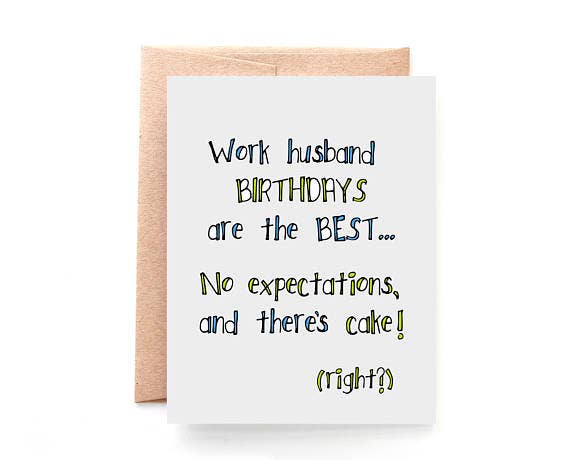 Work husband
BIRTHDAYS
are the BEST...
No expectations,
and there's cake!
(right?)